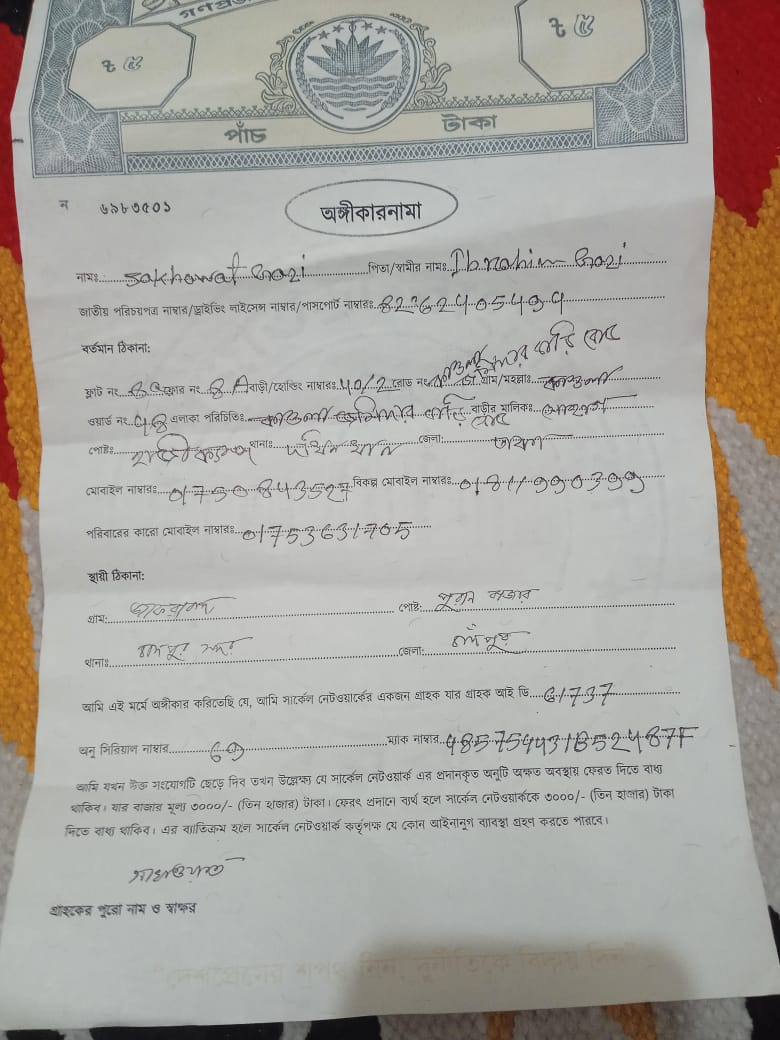 গণপ্র
৳ ৫ ৳ ৫
পাঁচ টাকা
ন ৬৯৮৩৫০১
অঙ্গীকারনামা
নামঃ Sakhawat Gazi পিতা/স্বামীর নামঃ Ibrahim Gazi
জাতীয় পরিচয়পত্র নাম্বার/ড্রাইভিং লাইসেন্স নাম্বার/পাসপোর্ট নাম্বারঃ
বর্তমান ঠিকানা:
ফ্লাট নং ফ্লোর নং 8A বাড়ী/হোল্ডিং নাম্বারঃ 40/2 রোড নং গ্রাম/মহল্লাঃ কাওলা
ওয়ার্ড নং এলাকা পরিচিতিঃ কাওলা জমিদার বাড়ি বাড়ীর মালিকঃ
পোষ্টঃ থানাঃ দক্ষিণ খান জেলা: ঢাকা
মোবাইল নাম্বারঃ বিকল্প মোবাইল নাম্বারঃ
পরিবারের কারো মোবাইল নাম্বারঃ 01753631705
স্থায়ী ঠিকানা:
গ্রাম: পোষ্ট: পুরান বাজার
থানাঃ চাঁদপুর সদর জেলা: চাঁদপুর
আমি এই মর্মে অঙ্গীকার করিতেছি যে, আমি সার্কেল নেটওয়ার্কের একজন গ্রাহক যার গ্রাহক আই ডি 61737
অনু সিরিয়াল নাম্বার ম্যাক নাম্বার
আমি যখন উক্ত সংযোগটি ছেড়ে দিব তখন উল্লেক্ষ্য যে সার্কেল নেটওয়ার্ক এর প্রদানকৃত অনুটি অক্ষত অবস্থায় ফেরত দিতে বাধ্য
থাকিব। যার বাজার মূল্য ৩০০০/- (তিন হাজার) টাকা। ফেরৎ প্রদানে ব্যর্থ হলে সার্কেল নেটওয়ার্ককে ৩০০০/- (তিন হাজার) টাকা
দিতে বাধ্য থাকিব। এর ব্যতিক্রম হলে সার্কেল নেটওয়ার্ক কর্তৃপক্ষ যে কোন আইনানুগ ব্যাবস্থা গ্রহণ করতে পারবে।
সাখাওয়াত
গ্রাহকের পুরো নাম ও স্বাক্ষর
"দেশপ্রেমের শপথ নিন, দুর্নীতিকে বিদায় দিন"